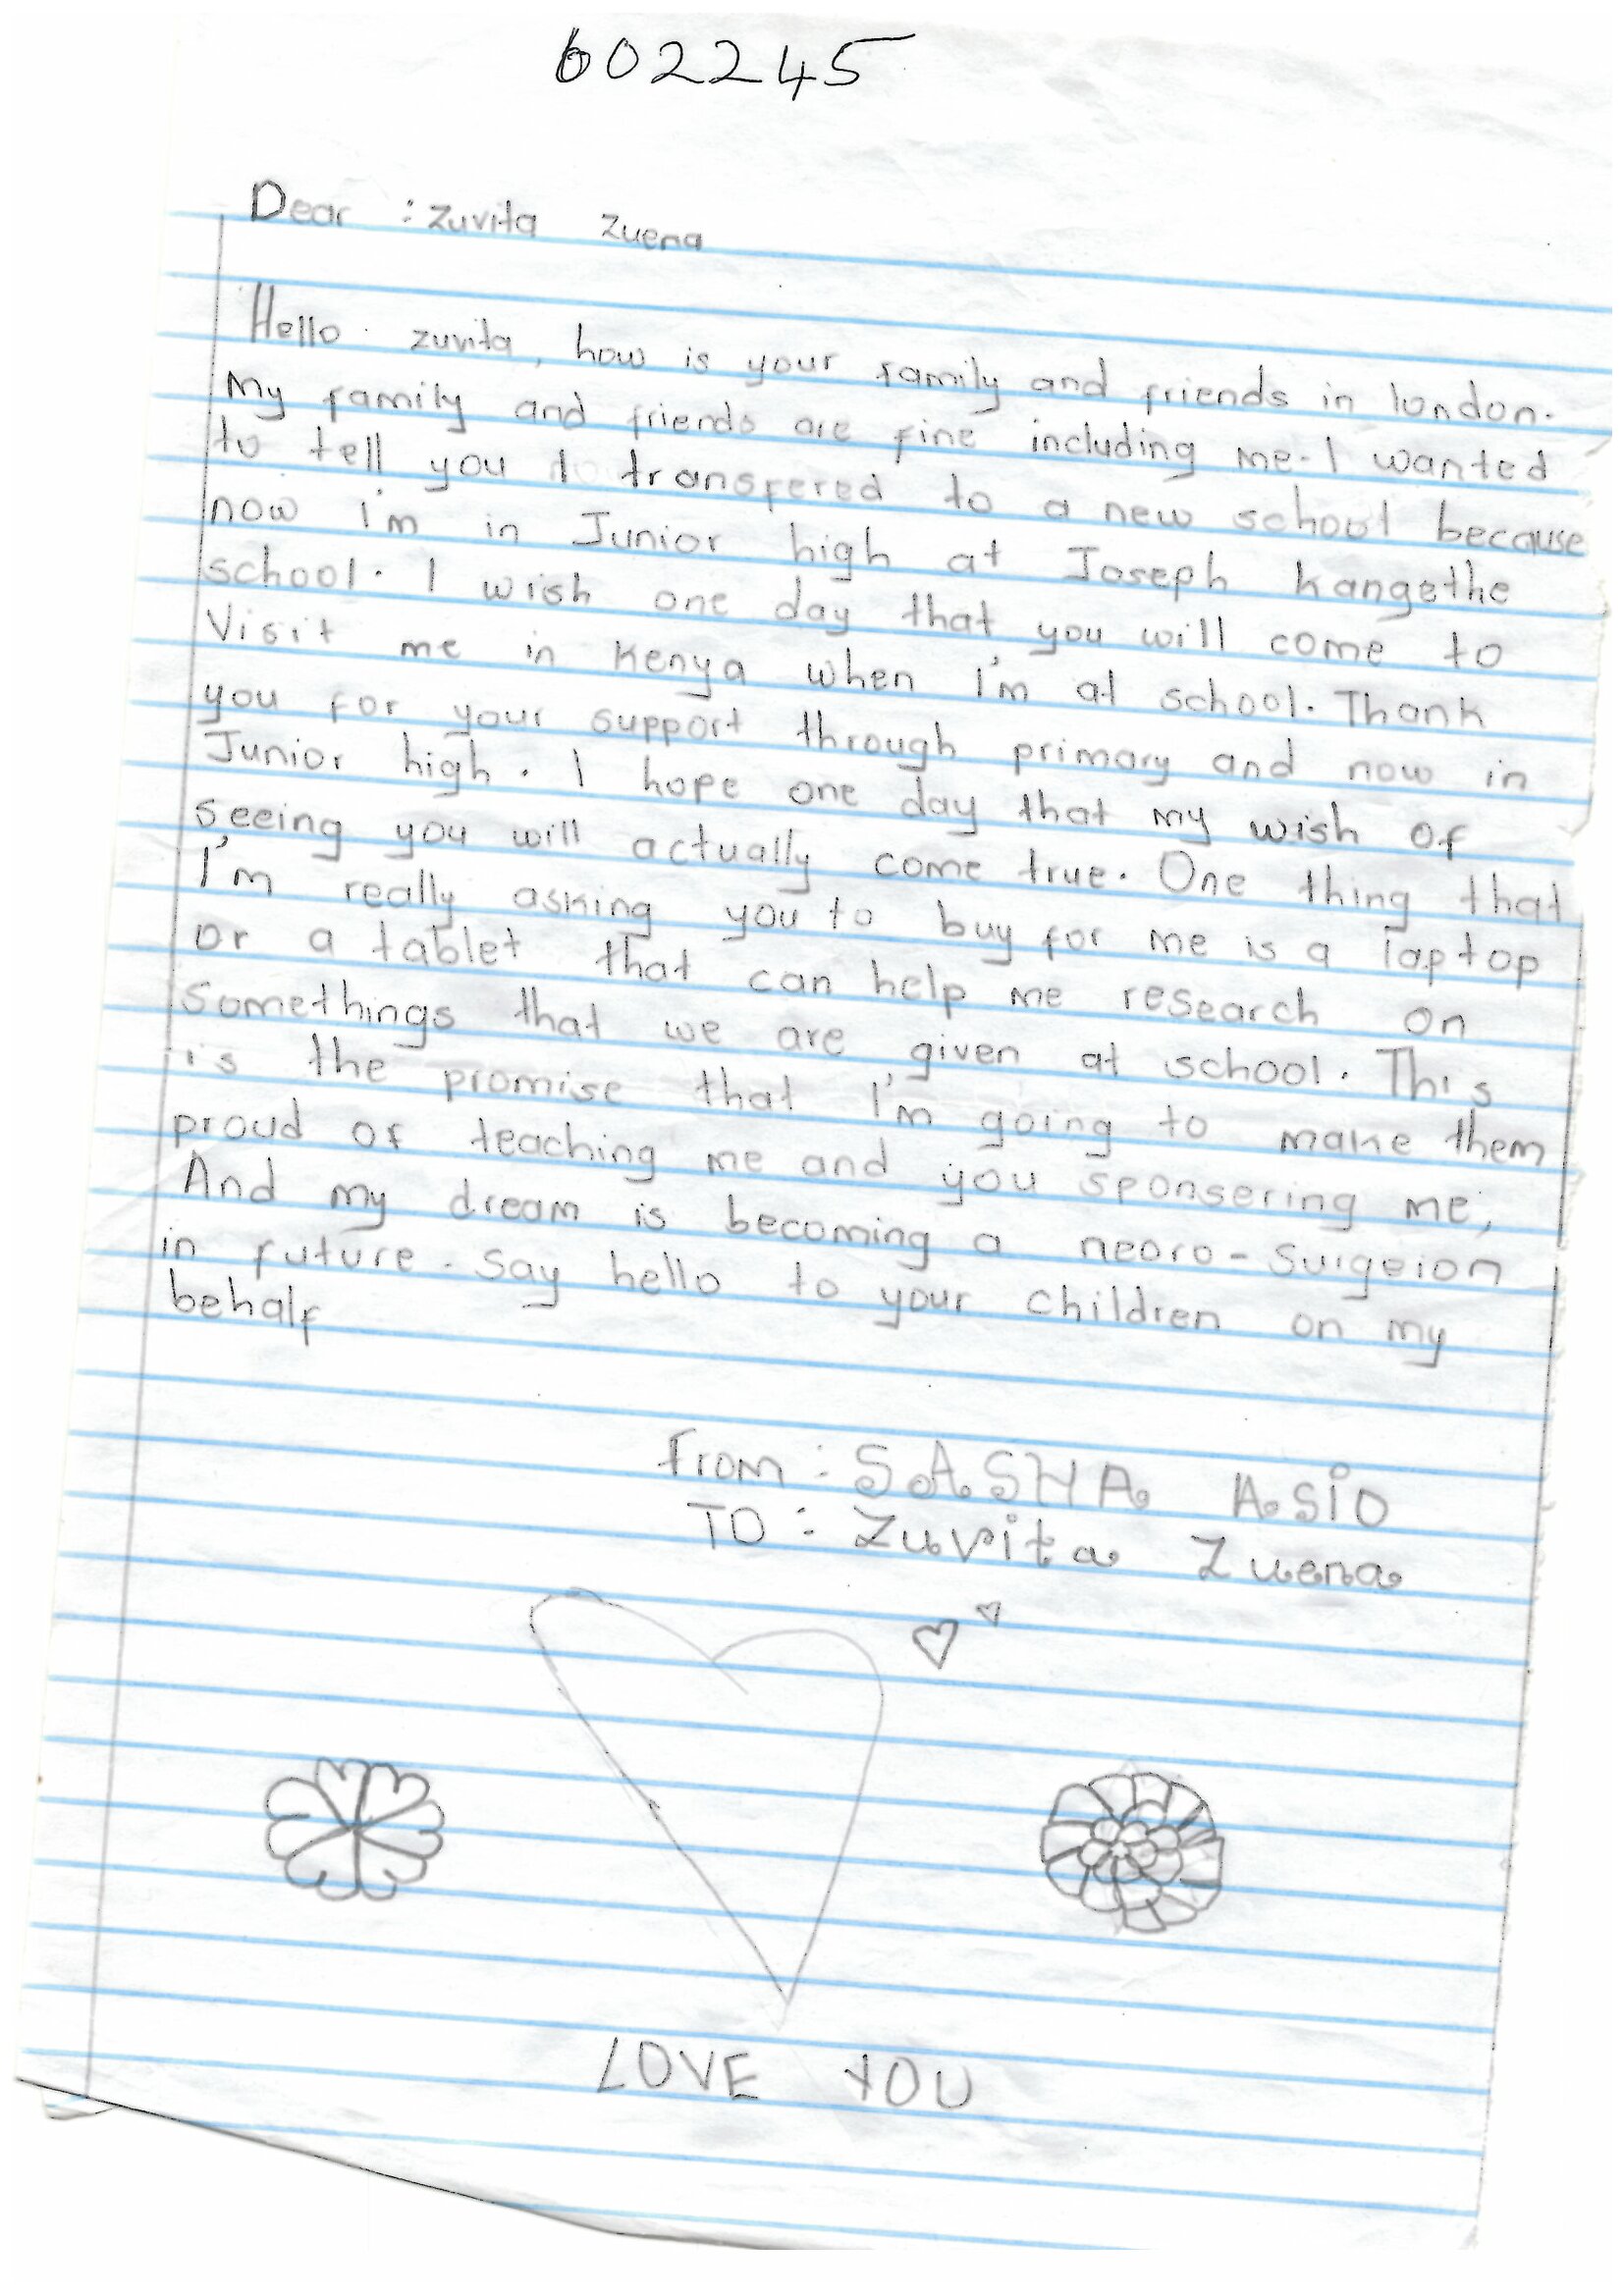 602245
Dear : Zuvita Zuena
Hello zuvita, how is your family and friends in london.
My family and friends are fine including me. I wanted
to tell you I transfered to a new school because
now i'm in Junior high at Joseph Kangethe
school. I wish one day that you will come to
Visit me in Kenya when I'm at school. Thank
you for your support through primary and now in
Junior high. I hope one day that my wish of
seeing you will actually come true. One thing that
I'm really asking you to buy for me is a laptop
or a tablet that can help me research on
somethings that we are given at school. This
is the promise that I'm going to make them
proud of teaching me and you sponsering me,
And my dream is becoming a neoro-surgeion
in future. Say hello to your children on my
behalf
From : SASHA ASiO
TO : Zuvita Zuena
LOVE YOU